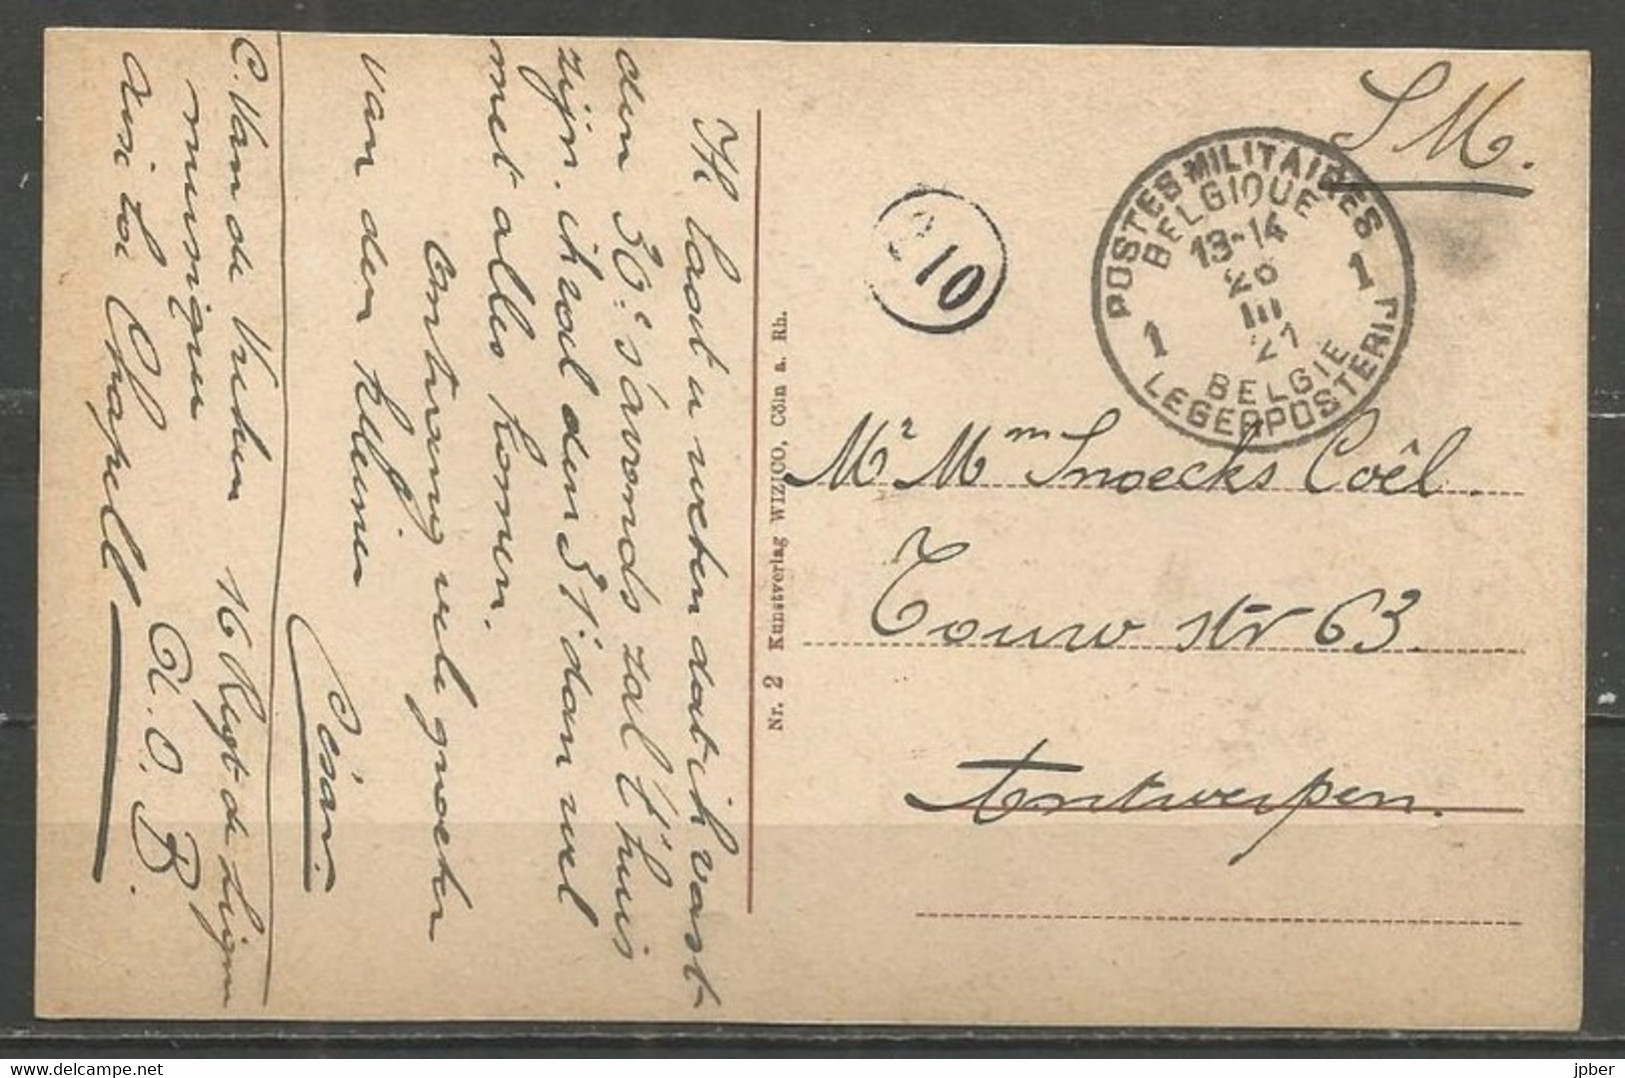 Ik laat u weten dat ik vast
den 30e s'avonds zal t'huis
zijn. ik zal den 31' dan wel
met alles komen.
Ontvang vele groeten
van den kleinen
César.
C. Van de
musique 16 Regt de Ligne
Aix la Chapell A.O.B.
Nr. 2 Kunstverlag WIZICO, Cöln a. Rh.
10
S M.
POSTES MILITAIRES
BELGIQUE
13-14
26
III
21
1 1
BELGIE
LEGERPOSTERIJ
Mr Mm Snoecks Coêl.
Touw str 63.
Antwerpen.
jpber
delcampe.net